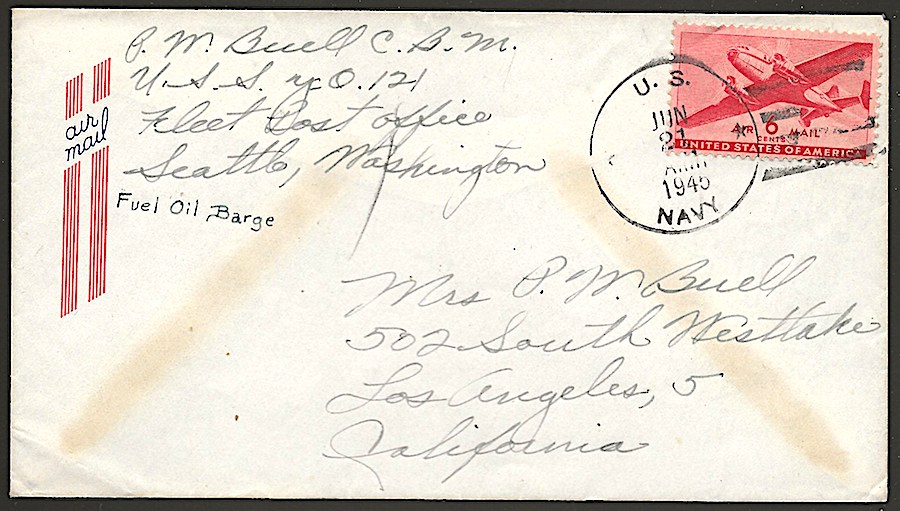 P. M. Buell C. B. M.
U. S. S. y. O. 121
Fleet Post office
Seattle, Washington
Fuel Oil Barge
air
mail
U. S.
JUN
21
A.M.
1945
NAVY
AIR 6 MAIL
CENTS
UNITED STATES OF AMERICA
Mrs P. M. Buell
502 South Westlake
Los Angeles, 5
California